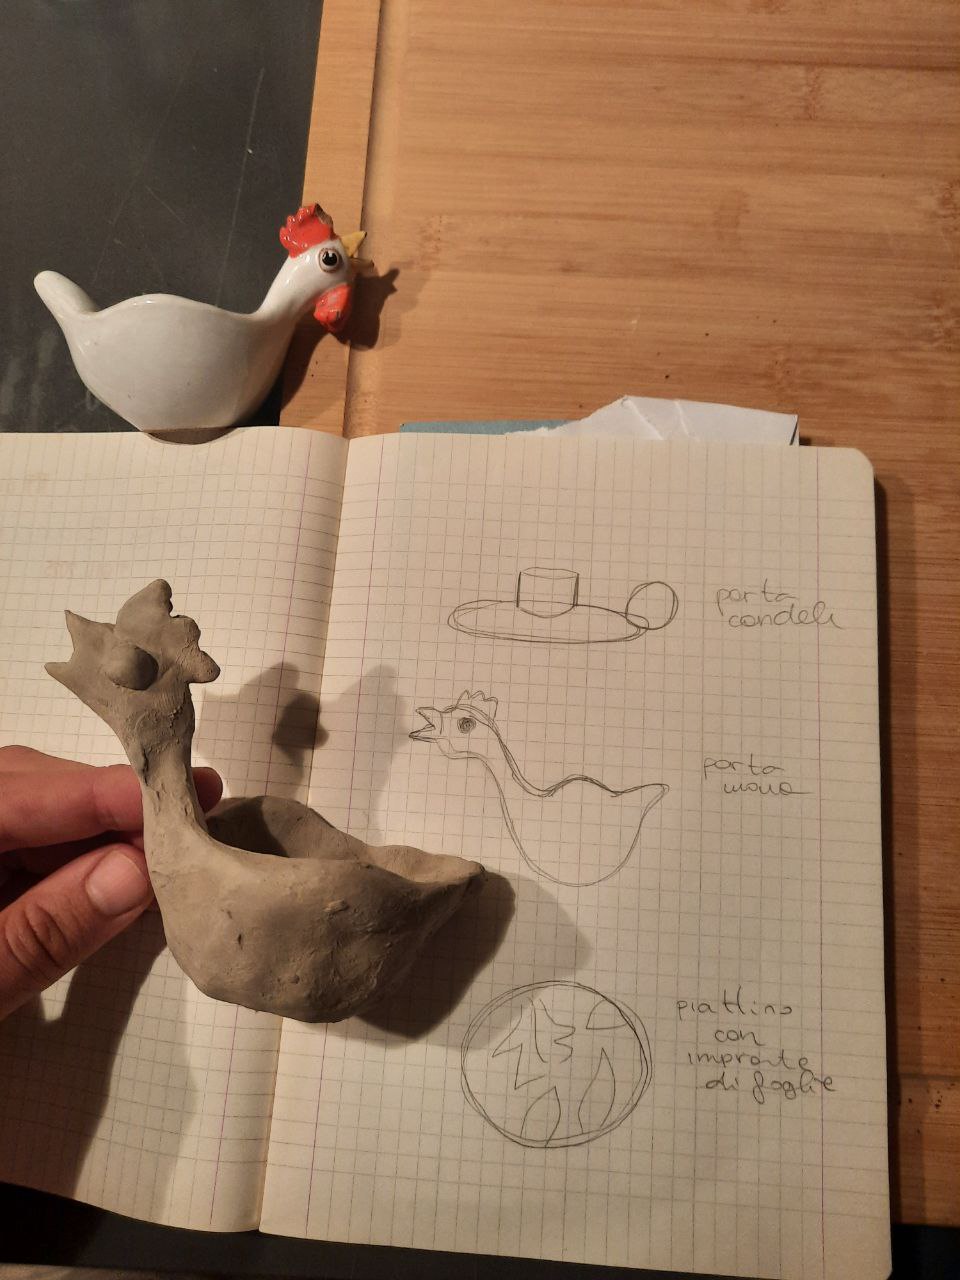 porta
candele
porta
uova
piattino
con
impronte
di foglie